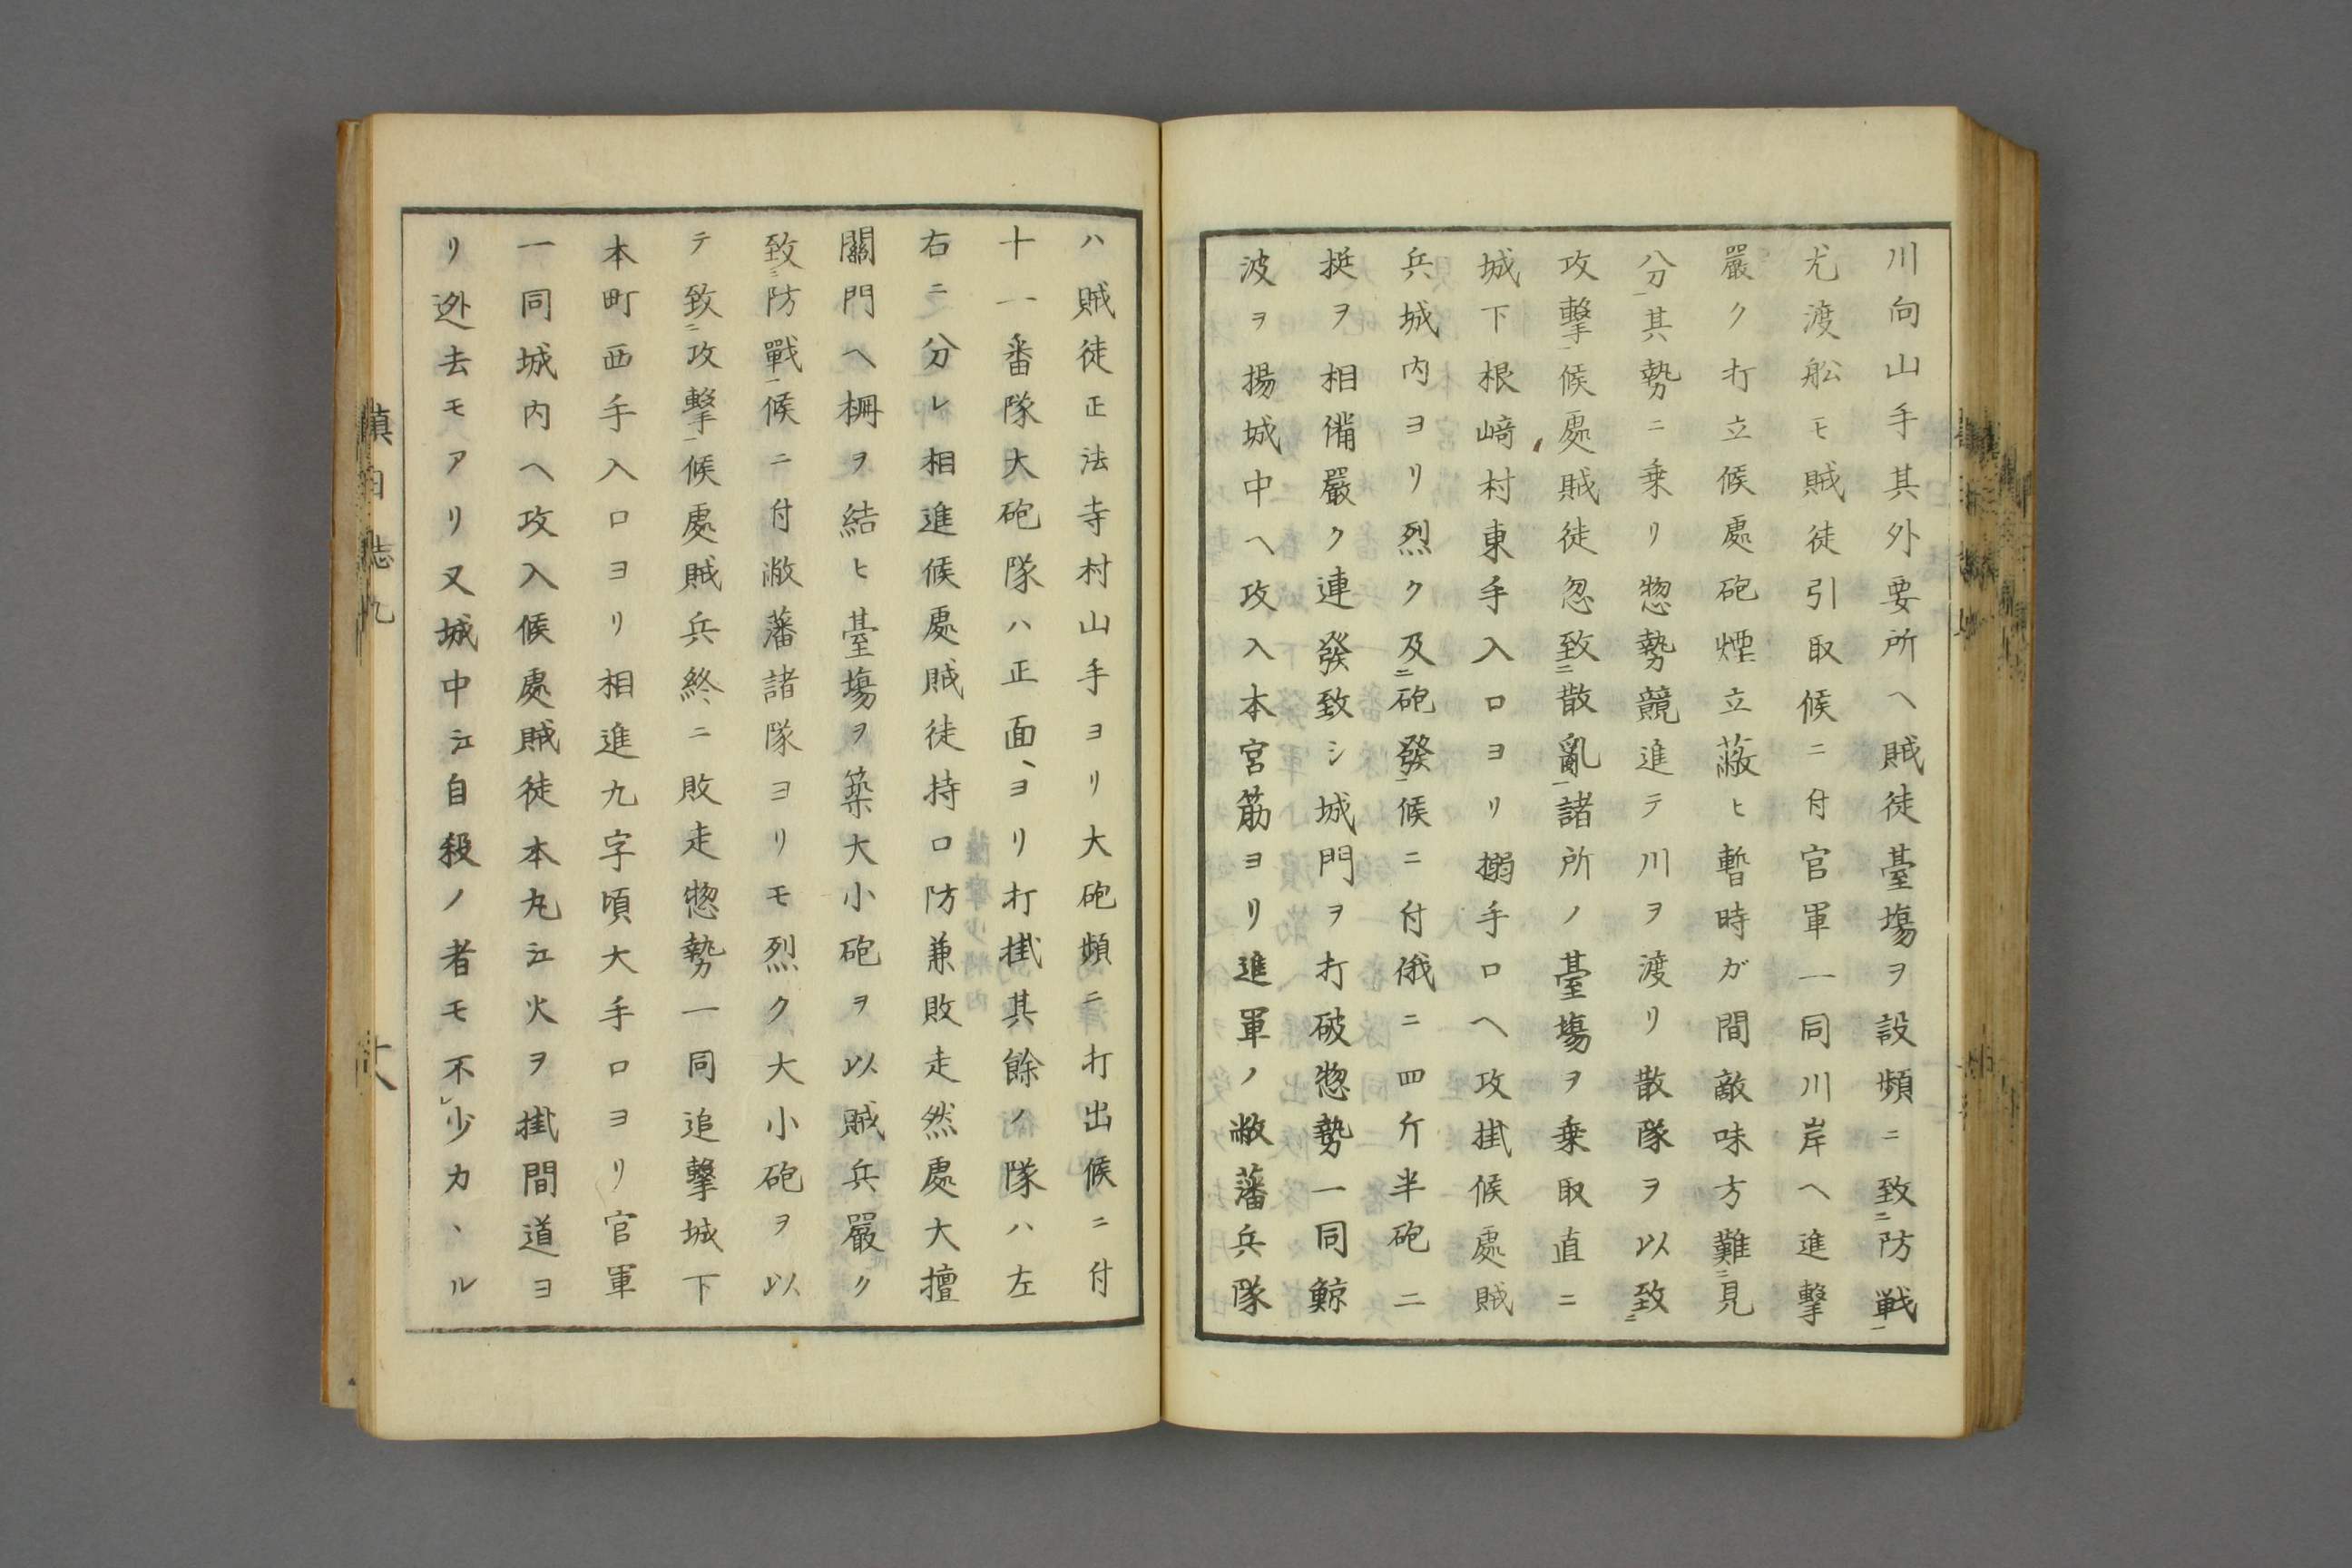 川向山手其外要所ヘ賊徒臺塲ヲ設頻ニ致ニ防戦一
尤渡舩モ賊徒引取候ニ付官軍一同川岸ヘ進擊
嚴ク打立候處砲煙立蔽ヒ暫時ガ間敵味方難ニ見
分一其勢ニ乗リ惣勢競進テ川ヲ渡リ散隊ヲ以致ニ
攻擊一候處賊徒忽致ニ散亂一諸所ノ臺塲ヲ乗取直ニ
城下根﨑村東手入口ヨリ搦手口ヘ攻掛候處賊
兵城内ヨリ烈ク及ニ砲發一候ニ付俄ニ四斤半砲二
挺ヲ相備嚴ク連發致シ城門ヲ打破惣勢一同鯨
波ヲ揚城中ヘ攻入本宮筋ヨリ進軍ノ敝藩兵隊
ハ賊徒正法寺村山手ヨリ大砲頻ニ打出候ニ付
十一番隊大砲隊ハ正面ヨリ打掛其餘ノ隊ハ左
右ニ分レ相進候處賊徒持口防兼敗走然處大擅
關門ヘ柵ヲ結ヒ臺塲ヲ築大小砲ヲ以賊兵嚴ク
致ニ防戰一候ニ付敝藩諸隊ヨリモ烈ク大小砲ヲ以
テ致ニ攻擊一候處賊兵終ニ敗走惣勢一同追擊城下
本町西手入口ヨリ相進九字頃大手口ヨリ官軍
一同城内ヘ攻入候處賊徒本丸江火ヲ掛間道ヨ
リ迯去モアリ又城中江自殺ノ者モ不レ少カヽル
鎮日誌九